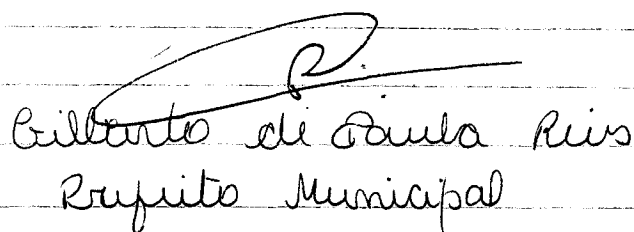 Gilberto de Paula Reis
Prefeito Municipal